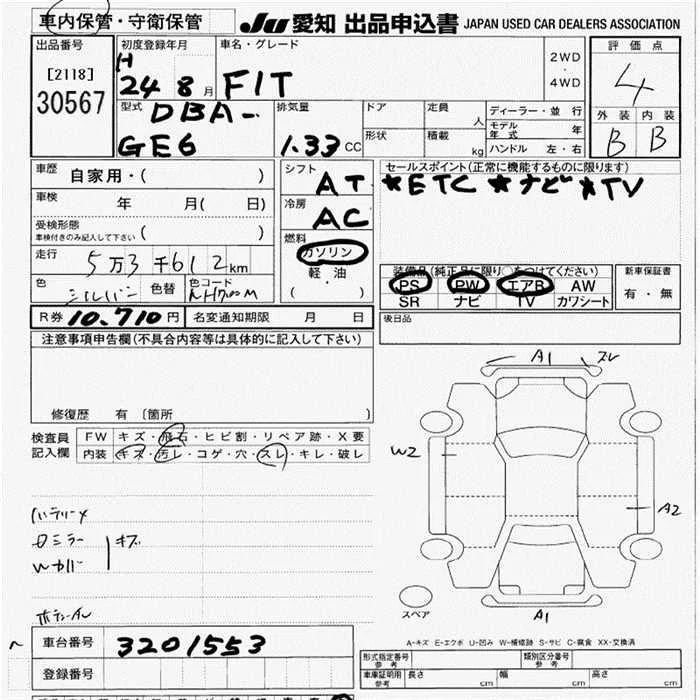 車内保管・守衛保管
JU 愛知 出品申込書 JAPAN USED CAR DEALERS ASSOCIATION
出品番号
[2118]
30567
初度登録年月
H
24 8月
車名・グレード
FIT
2WD
・
4WD
評価点
4
外装 内装
B B
型式
DBA-
GE6
排気量
1.33 CC
ドア
定員
人
形状
積載
kg
ディーラー・並行
モデル年式 年
ハンドル 左・右
車歴
自家用・( )
車検
年 月( 日)
受検形態
車検付きのみ記入して下さい ( )
走行
5万3千612km
色
シルバー
色替
色コード
NH700M
シフト
AT
冷房
AC
燃料
ガソリン
軽・油
( )
セールスポイント(正常に機能するものに限ります)
★ETC ★ナビ ★TV
装備品(純正品に限り○をつけてください)
PS PW エアB AW
SR ナビ TV カワシート
新車保証書
有・無
R券 10,710円
名変通知期限 月 日
後日品
注意事項申告欄(不具合内容等は具体的に記入して下さい)
修復歴 有 〔箇所 〕
検査員
記入欄
FW キズ・飛石・ヒビ割・リペア跡・X要
内装 キズ・汚レ・コゲ・穴・スレ・キレ・破レ
A1 スレ
W2
A2
バッテリーメ
Rミラー
Wカバー
キズ
スペア
A1
A-キズ E-エクボ U-凹み W-補修跡 S-サビ C-腐食 XX-交換済
車台番号 3201553
登録番号
形式指定番号
参考
類別区分番号
参考
車庫証明用
参考
長さ cm
幅 cm
高さ cm